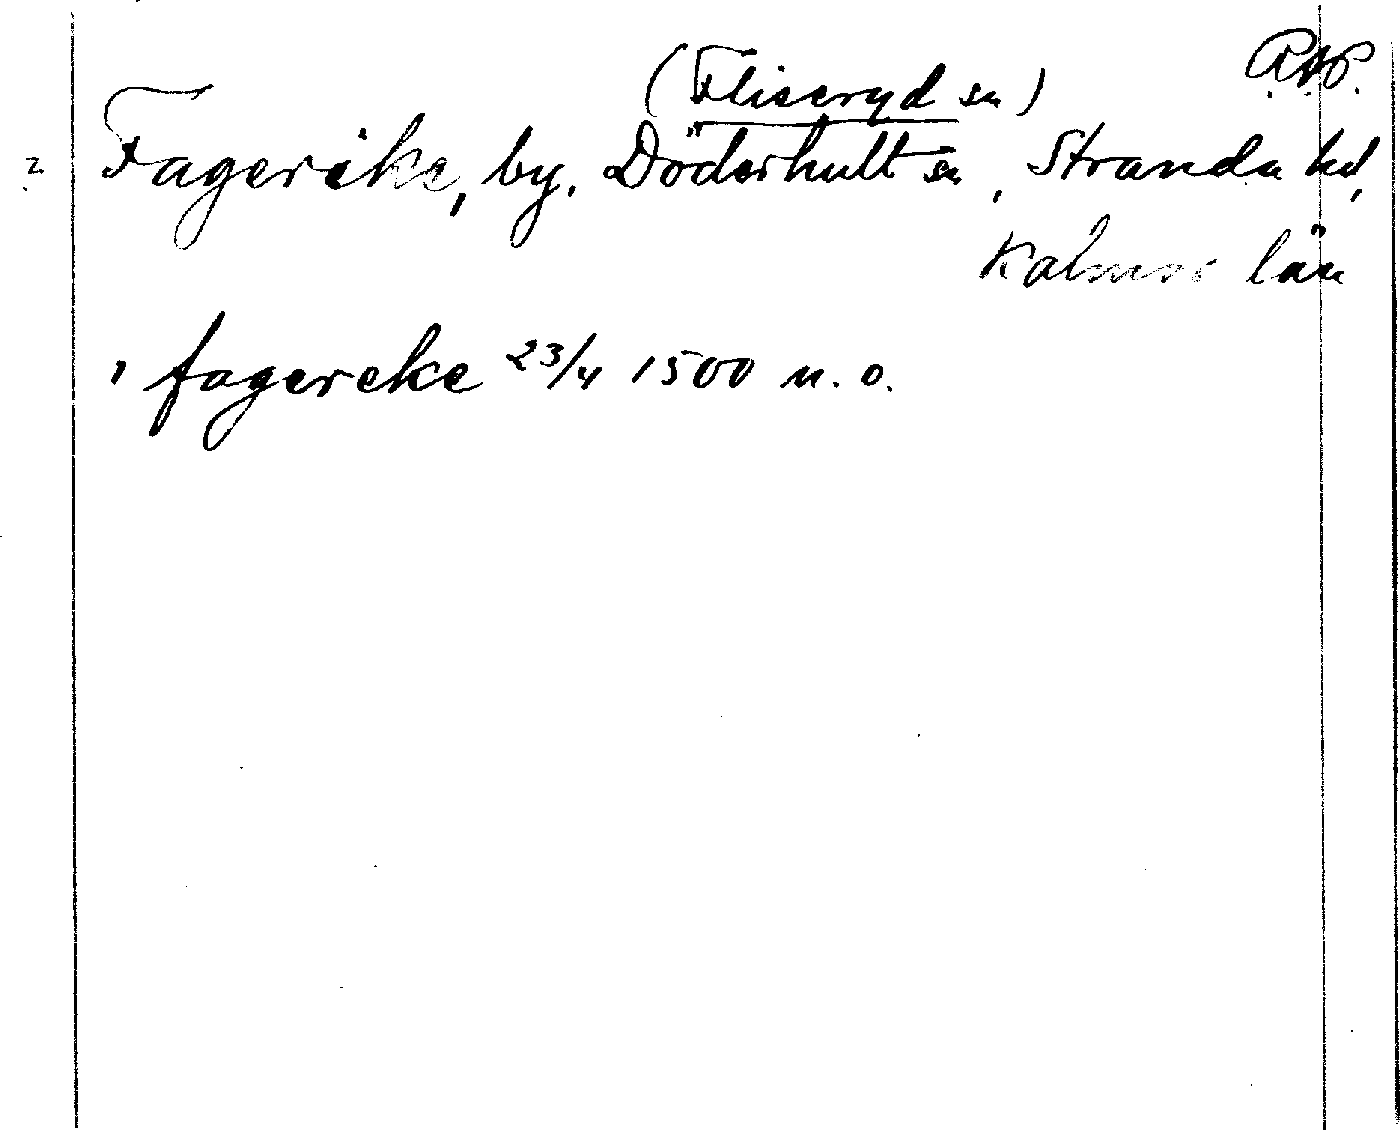 R.A.P.
(Fliseryd sn)
? Fagerike, by, Döderhult sn, Stranda hd,
Kalmar län
, fagereke 23/4 1500 n. o.